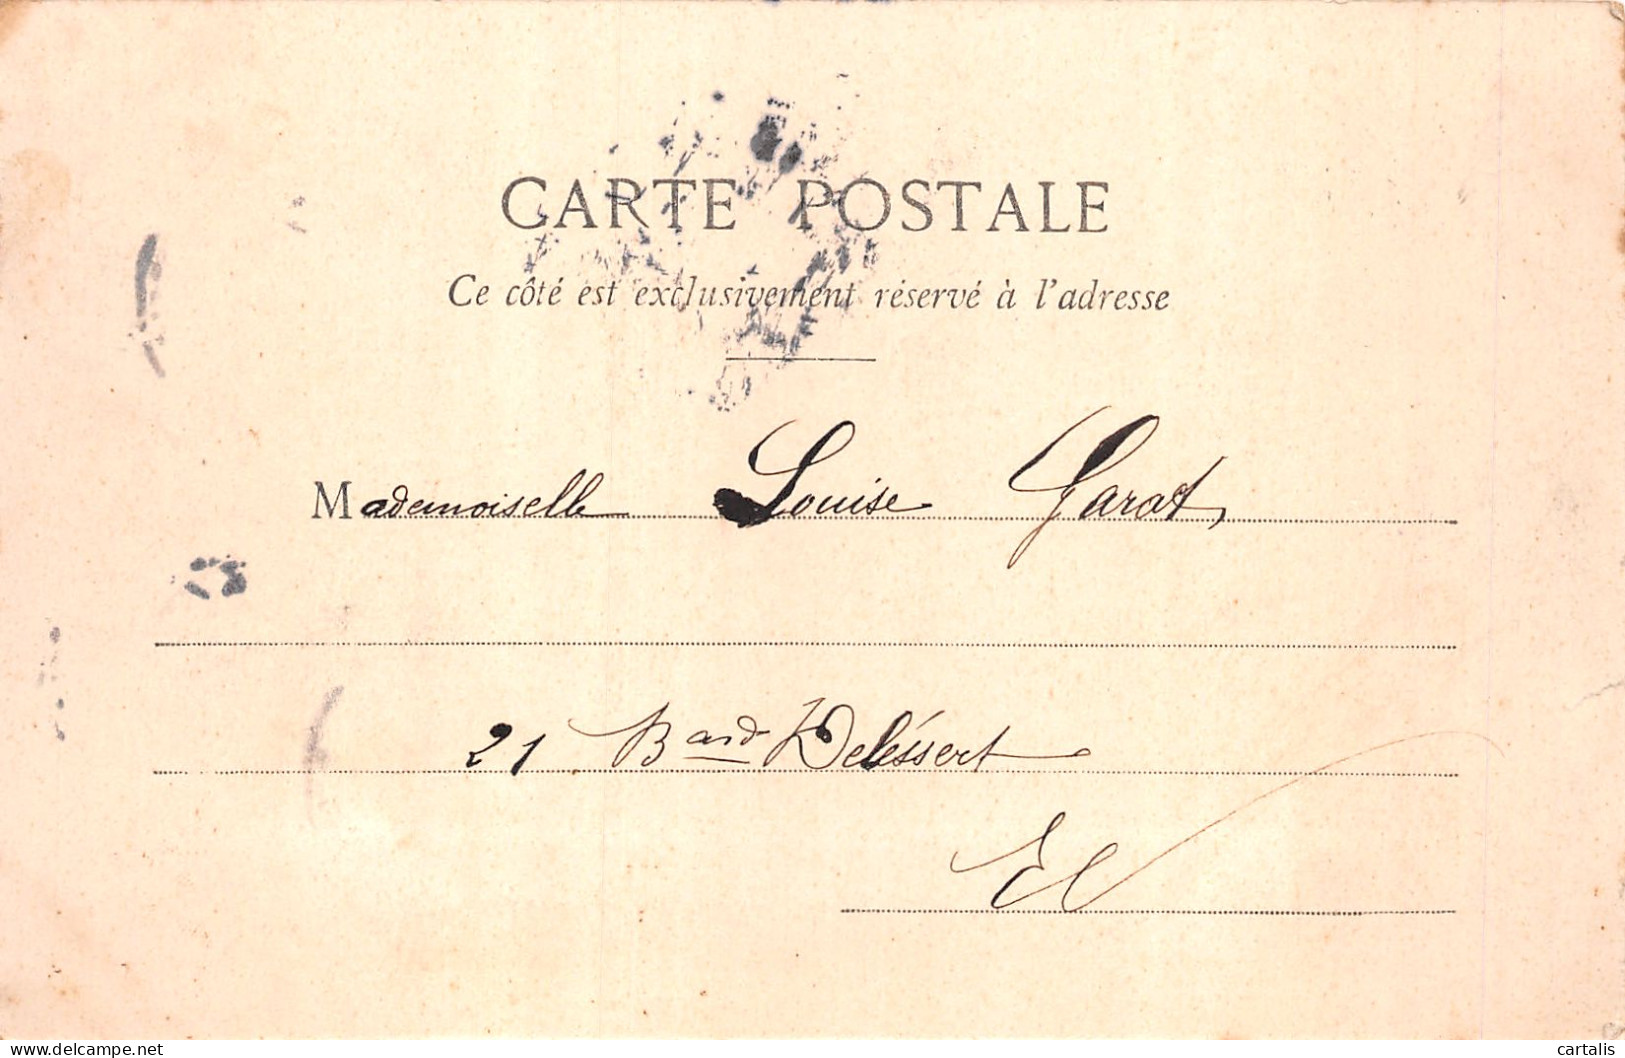 CARTE POSTALE
Ce côté est exclusivement réservé à l'adresse
Mademoiselle Louise Garat,
21 Bard Deléssert
EV
www.delcampe.net
cartalis